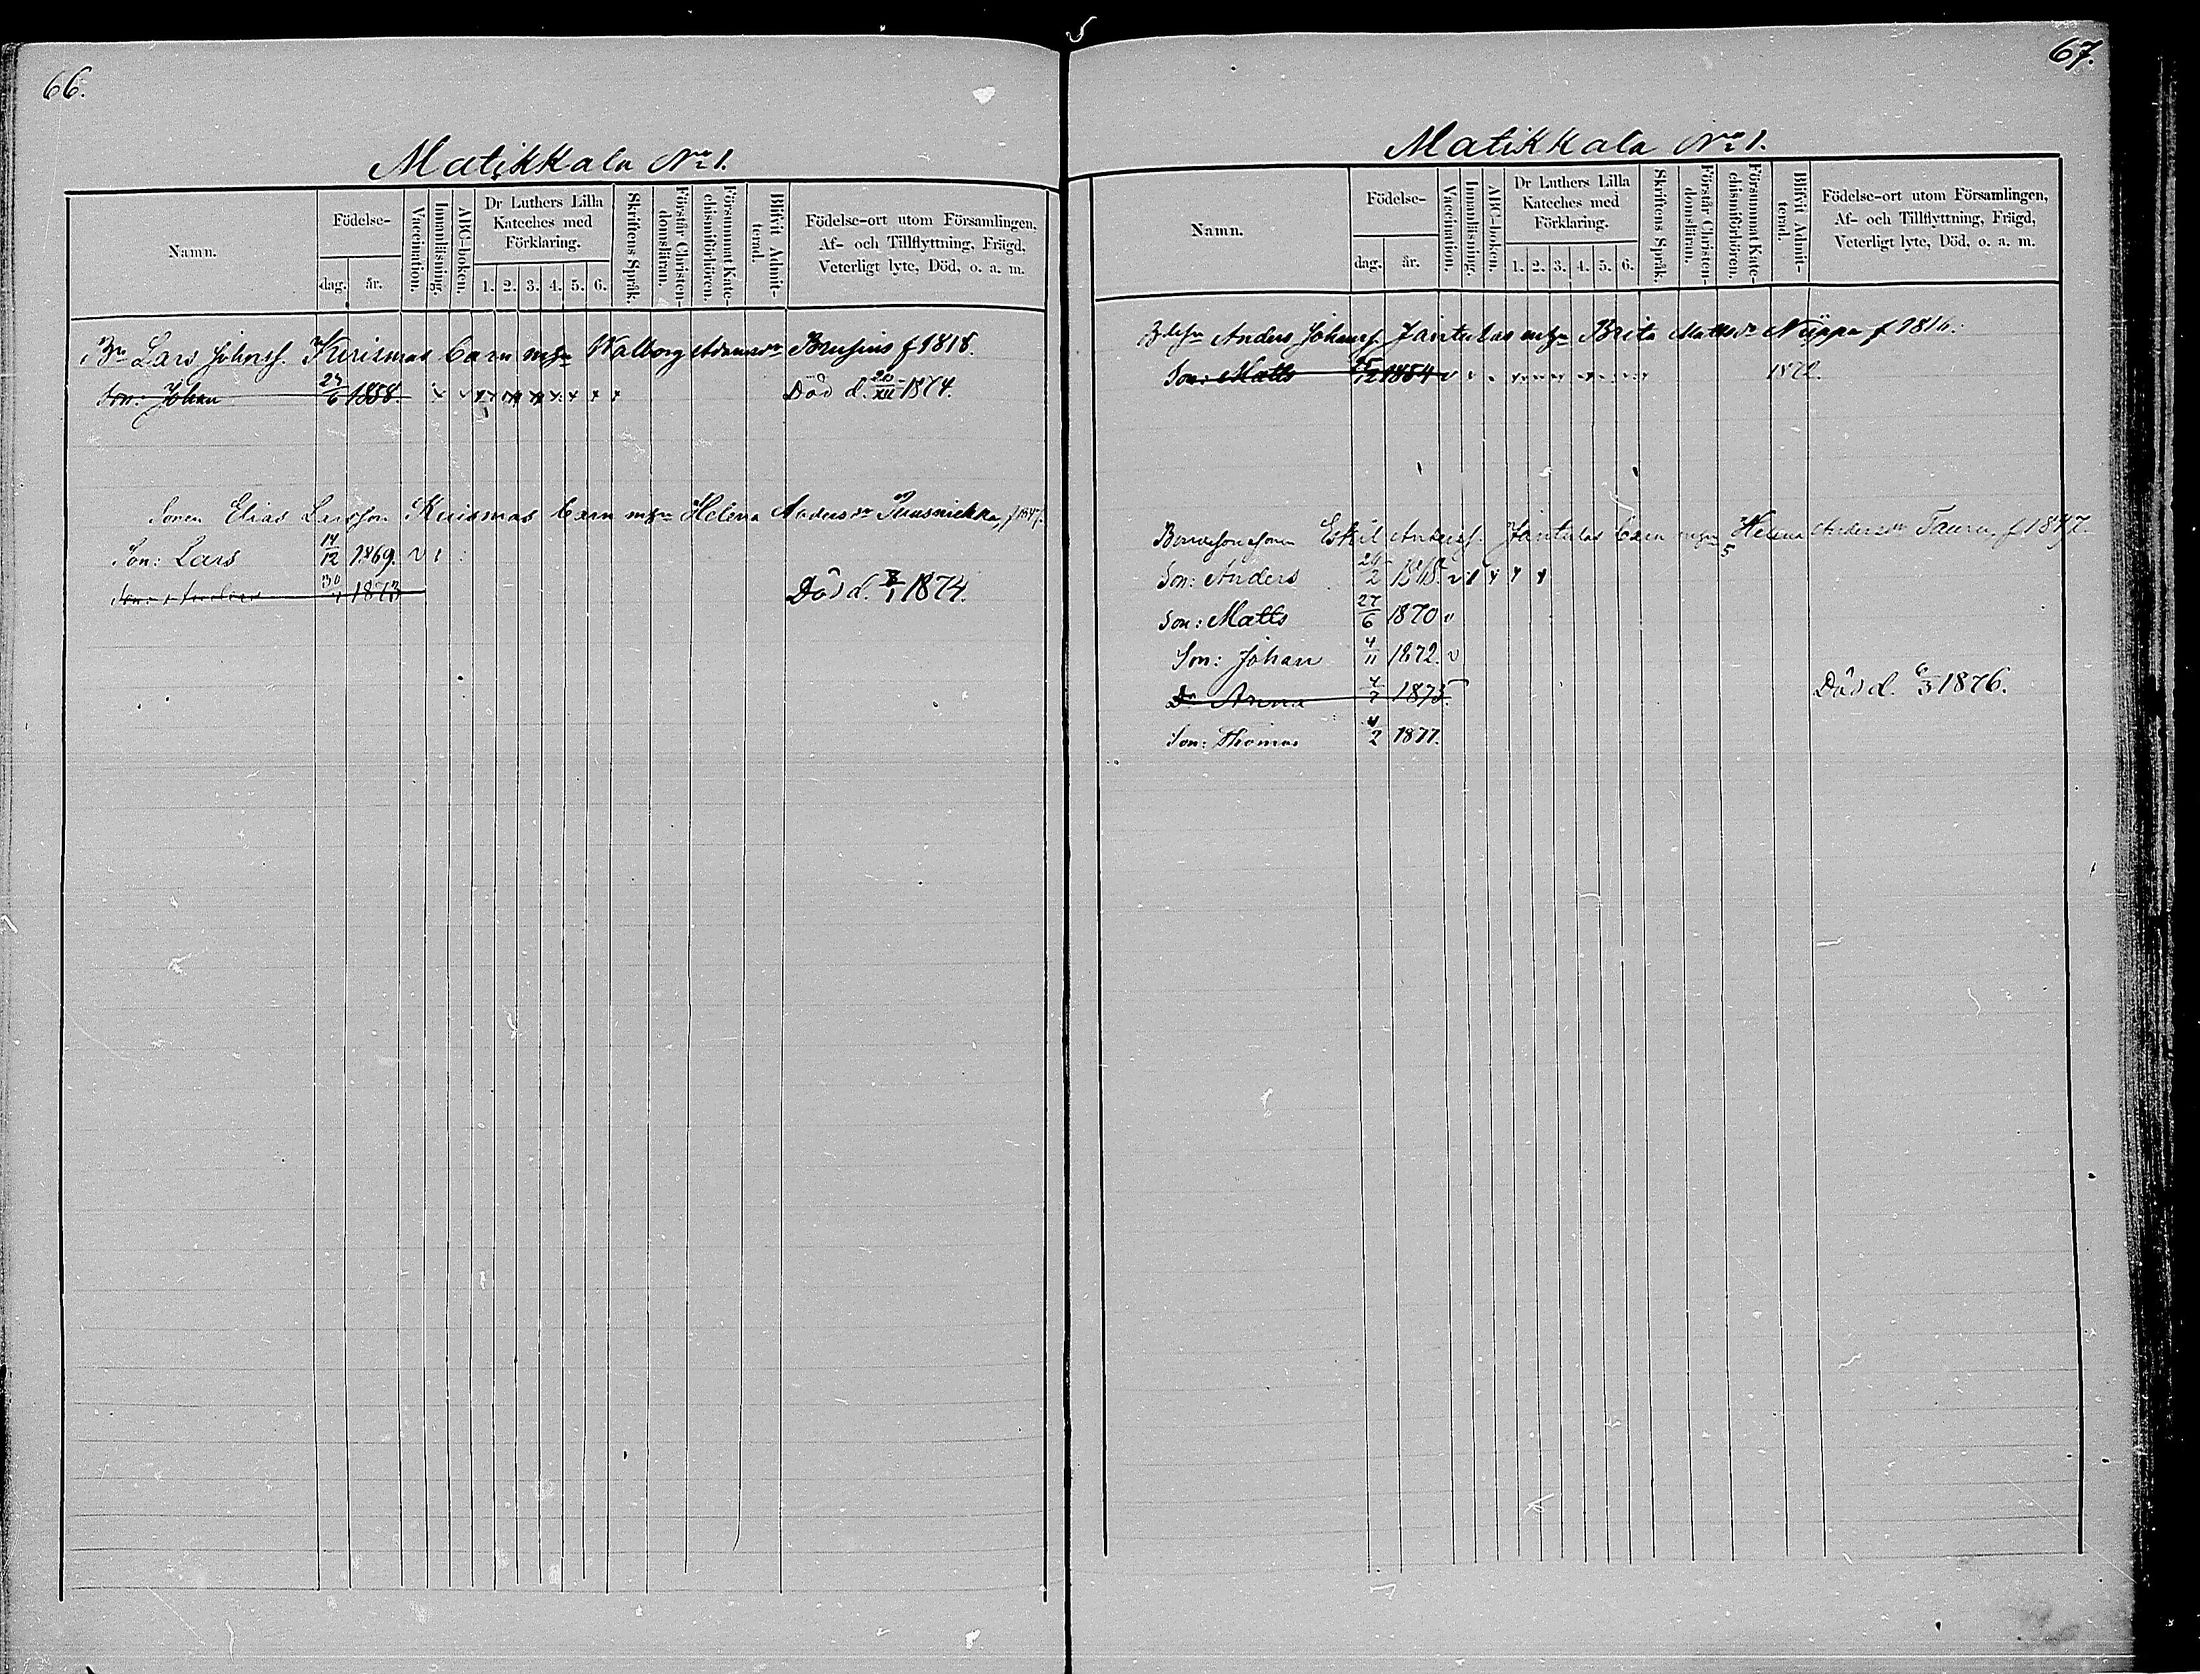 66.
Matikkala No 1.
Namn.
Födelse-
dag.
år.
Vaccination.
Innanläsning.
ABC-boken.
Dr Luthers Lilla
Kateches med
Förklaring.
1. 2. 3. 4. 5. 6.
Skriftens Språk.
Förstår Christen-
domsläran.
Försummat Kate-
chismiförhören.
Blifvit Admit-
terad.
Födelse-ort utom Församlingen,
Af- och Tillflyttning, Frägd,
Veterligt lyte, Död, o. a. m.
Lars Johans. Kurismas barn m hu Walborg Adamsdr Brusius f 1818.
Son: Johan 24/6 1858. Död d. 1874.
Sonen Elias Larsson Kurismas barn m hu Helena Andersdr
Son: Lars 14/12 1869. v
Son: Anders 30 1873 Död d. 1874.
67.
Matikkala No 1.
Namn.
Födelse-
dag.
år.
Vaccination.
Innanläsning.
ABC-boken.
Dr Luthers Lilla
Kateches med
Förklaring.
1. 2. 3. 4. 5. 6.
Skriftens Språk.
Förstår Christen-
domsläran.
Försummat Kate-
chismiförhören.
Blifvit Admit-
terad.
Födelse-ort utom Församlingen,
Af- och Tillflyttning, Frägd,
Veterligt lyte, Död, o. a. m.
Anders Johans. Jantulas m hu Brita Mattsdr f 1816.
Son: Matts 1854 1872.
Eskil Anders. Jantulas barn m hu Helena Andersdr Tauru, f 1847.
Son: Anders 1868. v
Son: Matts 27/6 1870 "
Son: Johan 4/11 1872. v
Dr Anna 4/7 1875. Död d. 6/3 1876.
Son: Thomas 4/2 1877.